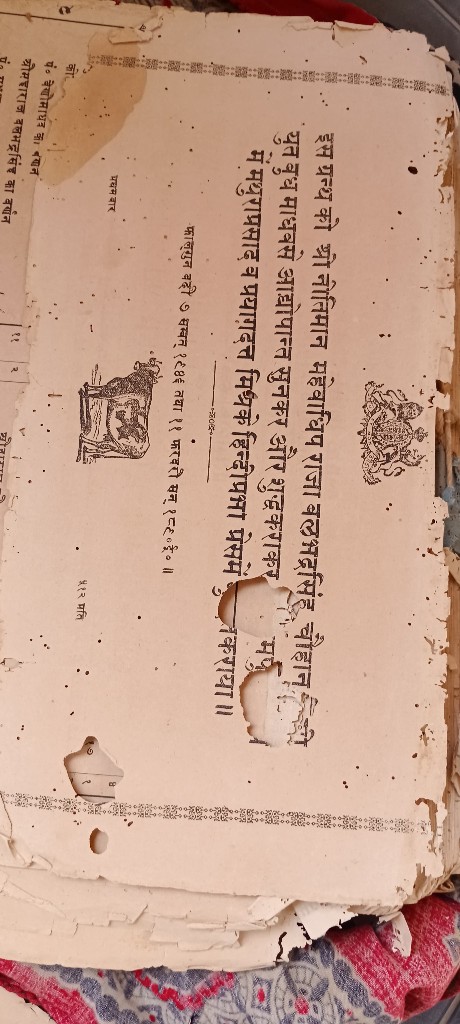 इस ग्रन्थ को श्री नीतिमान महेवाधिप राजा बलभद्रसिंह चौहान
युत बुध माधवसे आद्योपान्त सुनकर और शुद्ध कराकर
में मथुराप्रसाद व प्रयागदत्त मिश्रके हिन्दीप्रभा प्रेसमें
फाल्गुन वदी ७ सम्वत् १९४६ तथा ११ फरवरी सन् १८९० ई० ॥
प्रथम बार
५१२ प्रति
पं० बेनीमाधव का बयान
श्रीमहाराज बलभद्रसिंह का बयान
११
२